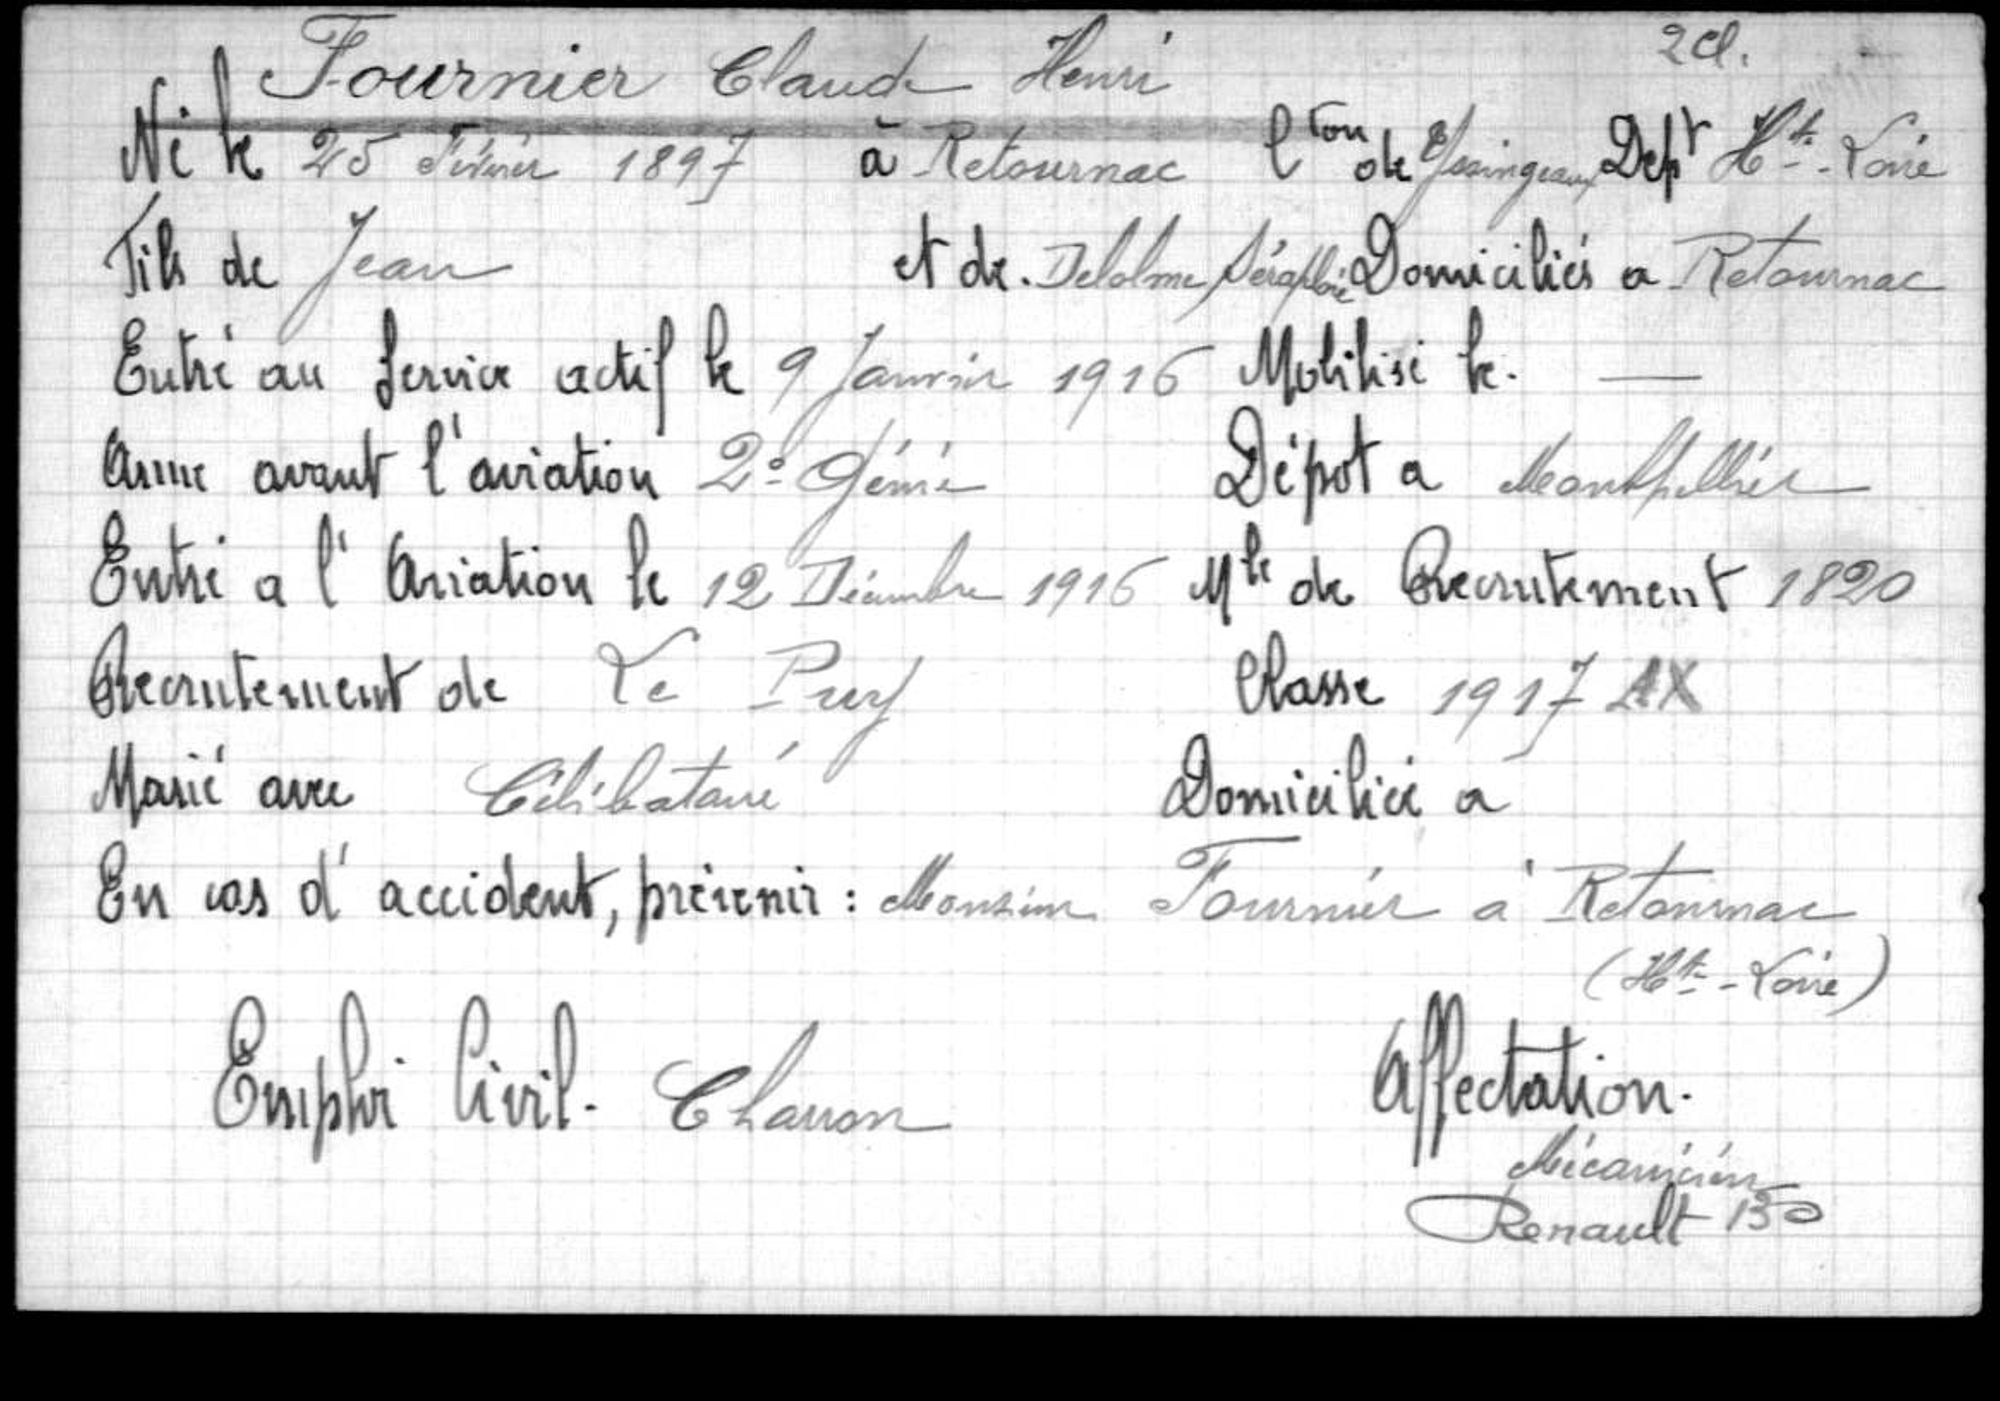 Fournier Claude Henri 2 cl.
Né le 25 Février 1897 à Retournac Cton de Yssingeaux Dept Hte-Loire
Fils de Jean et de. Delolme Séraphie Domiciliés a Retournac
Entré au Service actif le 9 Janvier 1916 Mobilisé le. —
Arme avant l'aviation 2e Génie Dépot a Montpellier
Entré a l'Aviation le 12 Décembre 1916 Mle de Recrutement 1820
Recrutement de Le Puy Classe 1917
Marié avec Célibataire Domiciliée a
En cas d'accident, prévenir : Monsieur Fournier à Retournac
(Hte-Loire)
Emploi Civil- Charron Affectation.
Mécanicien
Renault 130